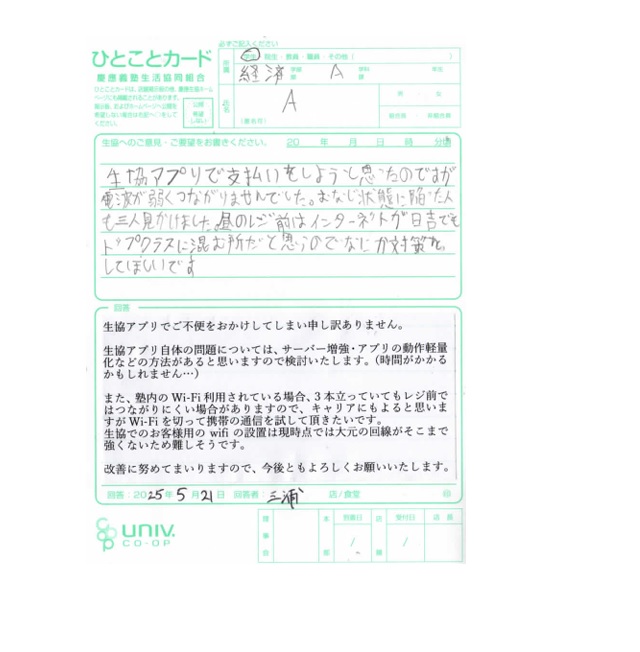 必ずご記入ください
ひとことカード
慶應義塾生活協同組合
ひとことカードは、店舗掲示板の他、慶應生協ホーム
ページにも掲載されることがあります。
公開
希望
しない
所属
学生・院生・教員・職員・その他(
経済 学部 A 学科 年生
氏名
A
(署名可)
組合員・非組合員
生協へのご意見・ご要望をお書きください。 20 年 月 日 時 分頃
生協アプリで支払いをしようと思ったのですが
電波が弱くつながりませんでした。おなじ状態に陥った人
も三人見かけました。昼のレジ前はインターネットが日吉でも
トップクラスに混む所だと思うのでなにか対策を
してほしいです
回答
生協アプリでご不便をおかけしてしまい申し訳ありません。
生協アプリ自体の問題については、サーバー増強・アプリの動作軽量
化などの方法があると思いますので検討いたします。(時間がかかる
かもしれません…)
また、塾内の Wi-Fi 利用されている場合、3 本立っていてもレジ前で
はつながりにくい場合がありますので、キャリアにもよると思いま
すが Wi-Fi を切って携帯の通信を試して頂きたいです。
生協でのお客様用の wifi の設置は現時点では大元の回線がそこまで
強くないため難しそうです。
改善に努めてまいりますので、今後ともよろしくお願いいたします。
回答:2025年5月21日 回答者:三浦 店/食堂 印
UNIV.
CO-OP
理事会
本部
店舗
受付日
店長
/
/